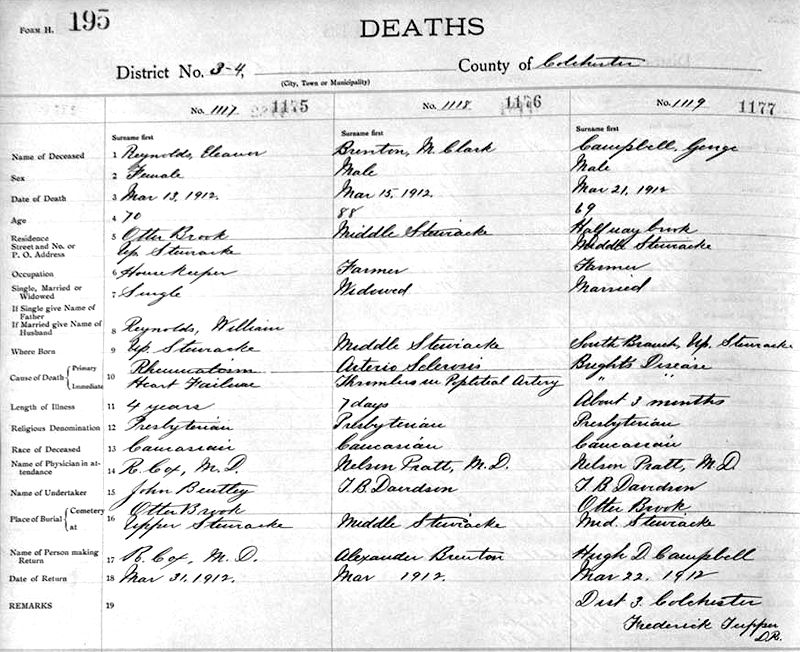 FORM H. 195
DEATHS
District No. 3-4, County of Colchester
(City, Town or Municipality)
No. 1117 1175 No. 1118 1176 No. 1119 1177
Surname first Surname first Surname first
Name of Deceased 1 Reynolds, Eleanor Brenton, M. Clark Campbell, George
Sex 2 Female Male Male
Date of Death 3 Mar 13, 1912. Mar 15, 1912. Mar 21, 1912
Age 4 70 88 69
Residence 5 Otter Brook Middle Stewiacke Halfway brook
Street and No. or
P. O. Address Up. Stewiacke Middle Stewiacke
Occupation 6 Housekeeper Farmer Farmer
Single, Married or
Widowed 7 Single Widowed Married
If Single give Name of
Father
If Married give Name of
Husband 8 Reynolds, William
Where Born 9 Up. Stewiacke Middle Stewiacke South Branch, Up. Stewiacke
Cause of Death { Primary 10 Rheumatism Arterio Sclerosis Brights Disease
Immediate Heart Failure Thrombus in Popliteal Artery " "
Length of Illness 11 4 years 7 days About 3 months
Religious Denomination 12 Presbyterian Presbyterian Presbyterian
Race of Deceased 13 Caucasian Caucasian Caucasian
Name of Physician in at-
tendance 14 R. Cox, M.D. Nelson Pratt, M.D. Nelson Pratt, M.D.
Name of Undertaker 15 John Bentley T.B. Davidson T.B Davidson
Place of Burial { Cemetery 16 Otter Brook Otter Brook
at Upper Stewiacke Middle Stewiacke Mid. Stewiacke
Name of Person making
Return 17 R. Cox, M.D. Alexander Brenton Hugh D. Campbell
Date of Return 18 Mar 31, 1912. Mar 1912. Mar 22, 1912
REMARKS 19 Dist 3. Colchester
Frederick Tupper
D.R.